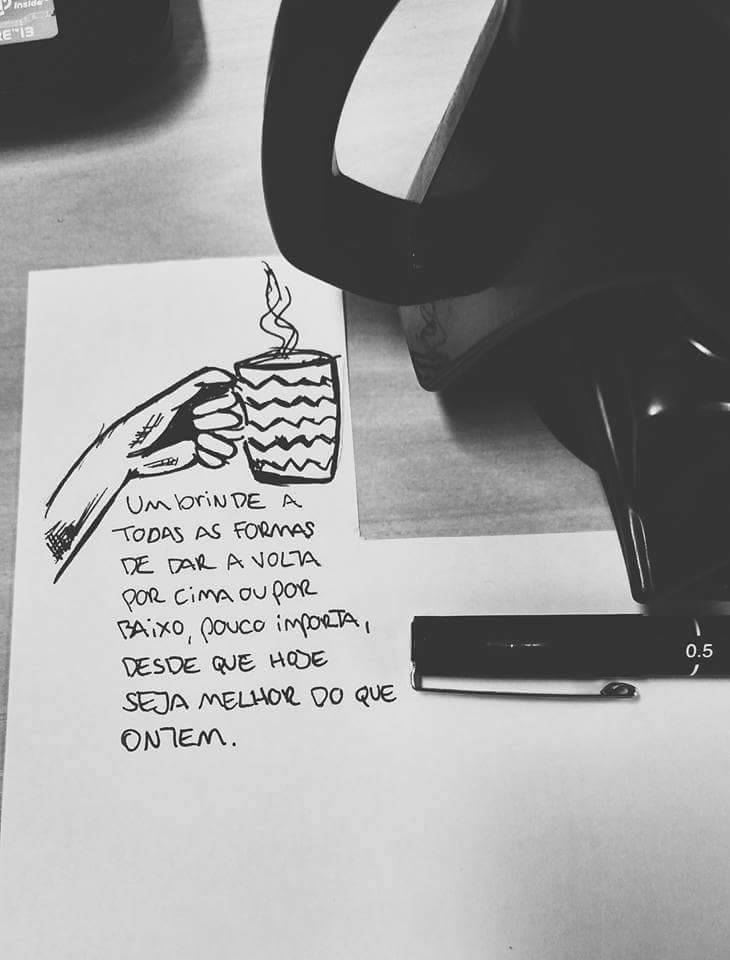 inside™
™ i3
Um brinde a
todas as formas
de dar a volta
por cima ou por
baixo, pouco importa,
desde que hoje
seja melhor do que
ontem.
0.5